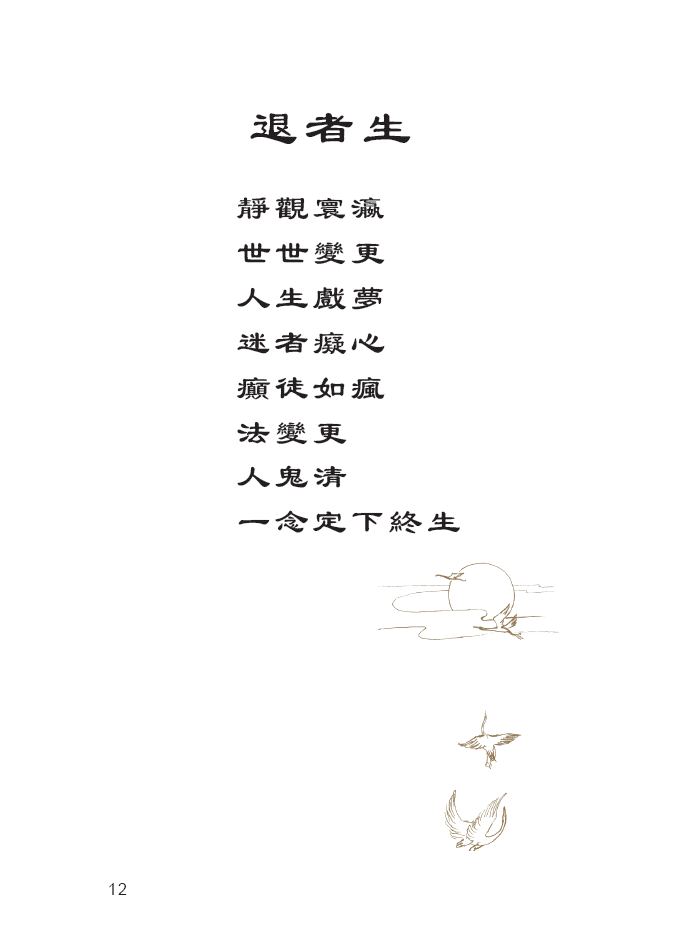 退者生
靜觀寰瀛
世世變更
人生戲夢
迷者癡心
癲徒如瘋
法變更
人鬼清
一念定下終生
12